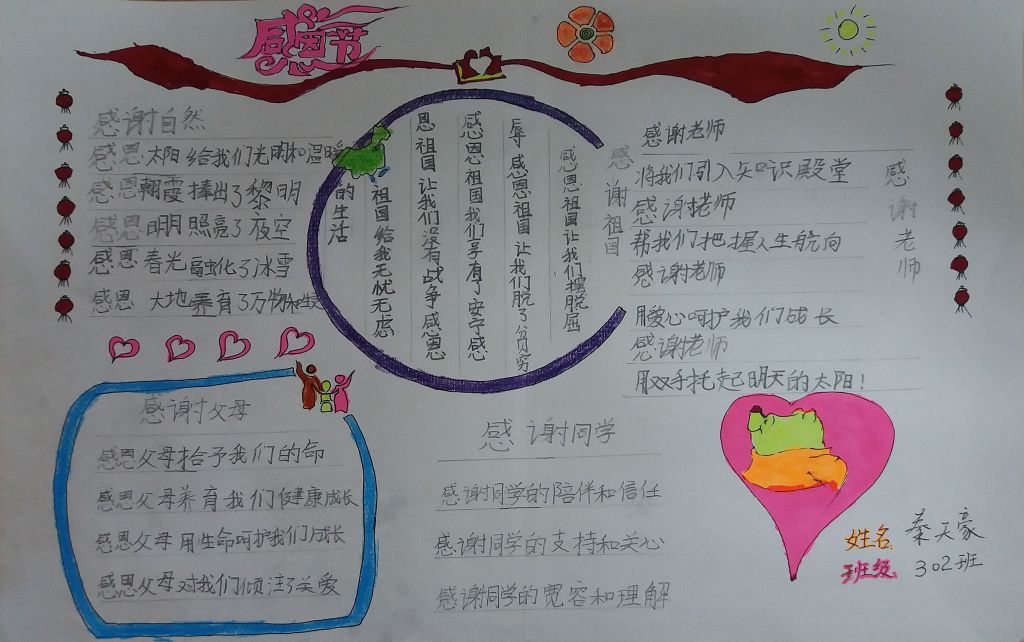 感恩节
感谢自然
感恩太阳给我们光明和温暖
感恩朝霞捧出了黎明
感恩明月照亮了夜空
感恩春光融化了冰雪
感恩大地养育了万物和
感谢祖国
感恩祖国让我们摆脱屈
辱感恩祖国让我们脱了贫穷
感恩祖国我们享有了安宁感
恩祖国让我们没有战争感恩
祖国给我无忧无虑
的生活
感谢老师
感谢老师
将我们引入知识殿堂
感谢老师
帮我们把握人生航向
感谢老师
用爱心呵护我们成长
感谢老师
用双手托起明天的太阳!
感谢父母
感恩父母给予我们的命
感恩父母养育我们健康成长
感恩父母用生命呵护我们成长
感恩父母对我们倾注了关爱
感谢同学
感谢同学的陪伴和信任
感谢同学的支持和关心
感谢同学的宽容和理解
姓名:秦天豪
班级 302班